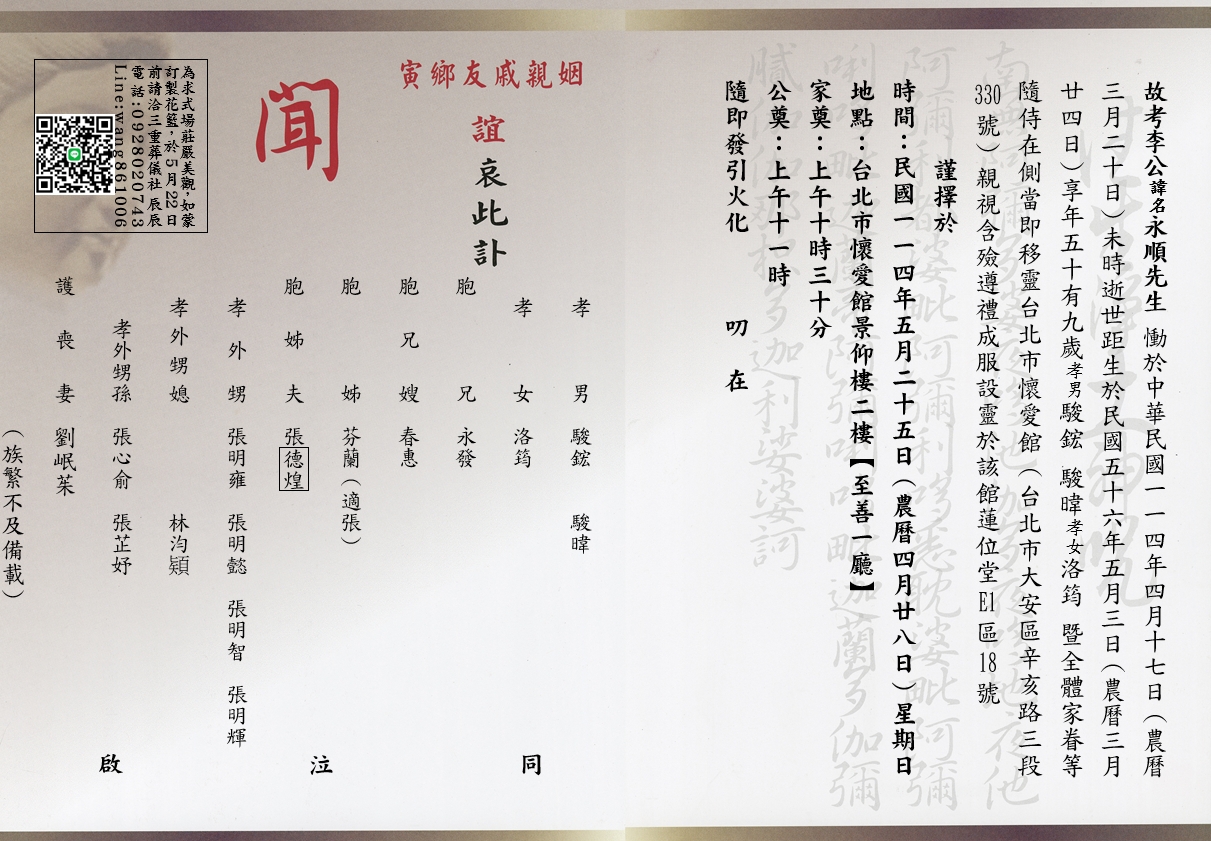 故考李公諱名永順先生 慟於中華民國一一四年四月十七日（農曆
三月二十日）未時逝世距生於民國五十六年五月三日（農曆三月
廿四日）享年五十有九歲孝男駿鋐 駿暐孝女洛筠 暨全體家眷等
隨侍在側當即移靈台北市懷愛館（台北市大安區辛亥路三段
330號）親視含殮遵禮成服設靈於該館蓮位堂E1區18號
謹擇於
時間：民國一一四年五月二十五日（農曆四月廿八日）星期日
地點：台北市懷愛館景仰樓二樓【至善一廳】
家奠：上午十時三十分
公奠：上午十一時
隨即發引火化 叨在
寅鄉友戚親姻
誼哀此訃
聞
孝男 駿鋐 駿暐
孝女 洛筠
胞兄 永發
胞兄嫂 春惠
胞姊 芬蘭（適張）
胞姊夫 張德煌
孝外甥 張明雍 張明懿 張明智 張明輝
孝外甥媳 林沟穎
孝外甥孫 張心俞 張芷妤
護喪妻 劉岷茱
（族繁不及備載）
同泣啟
為求式場莊嚴美觀，如蒙
訂製花籃，於5月22日
前請洽三重葬儀社 辰辰
電話：0928020743
Line:wang861006